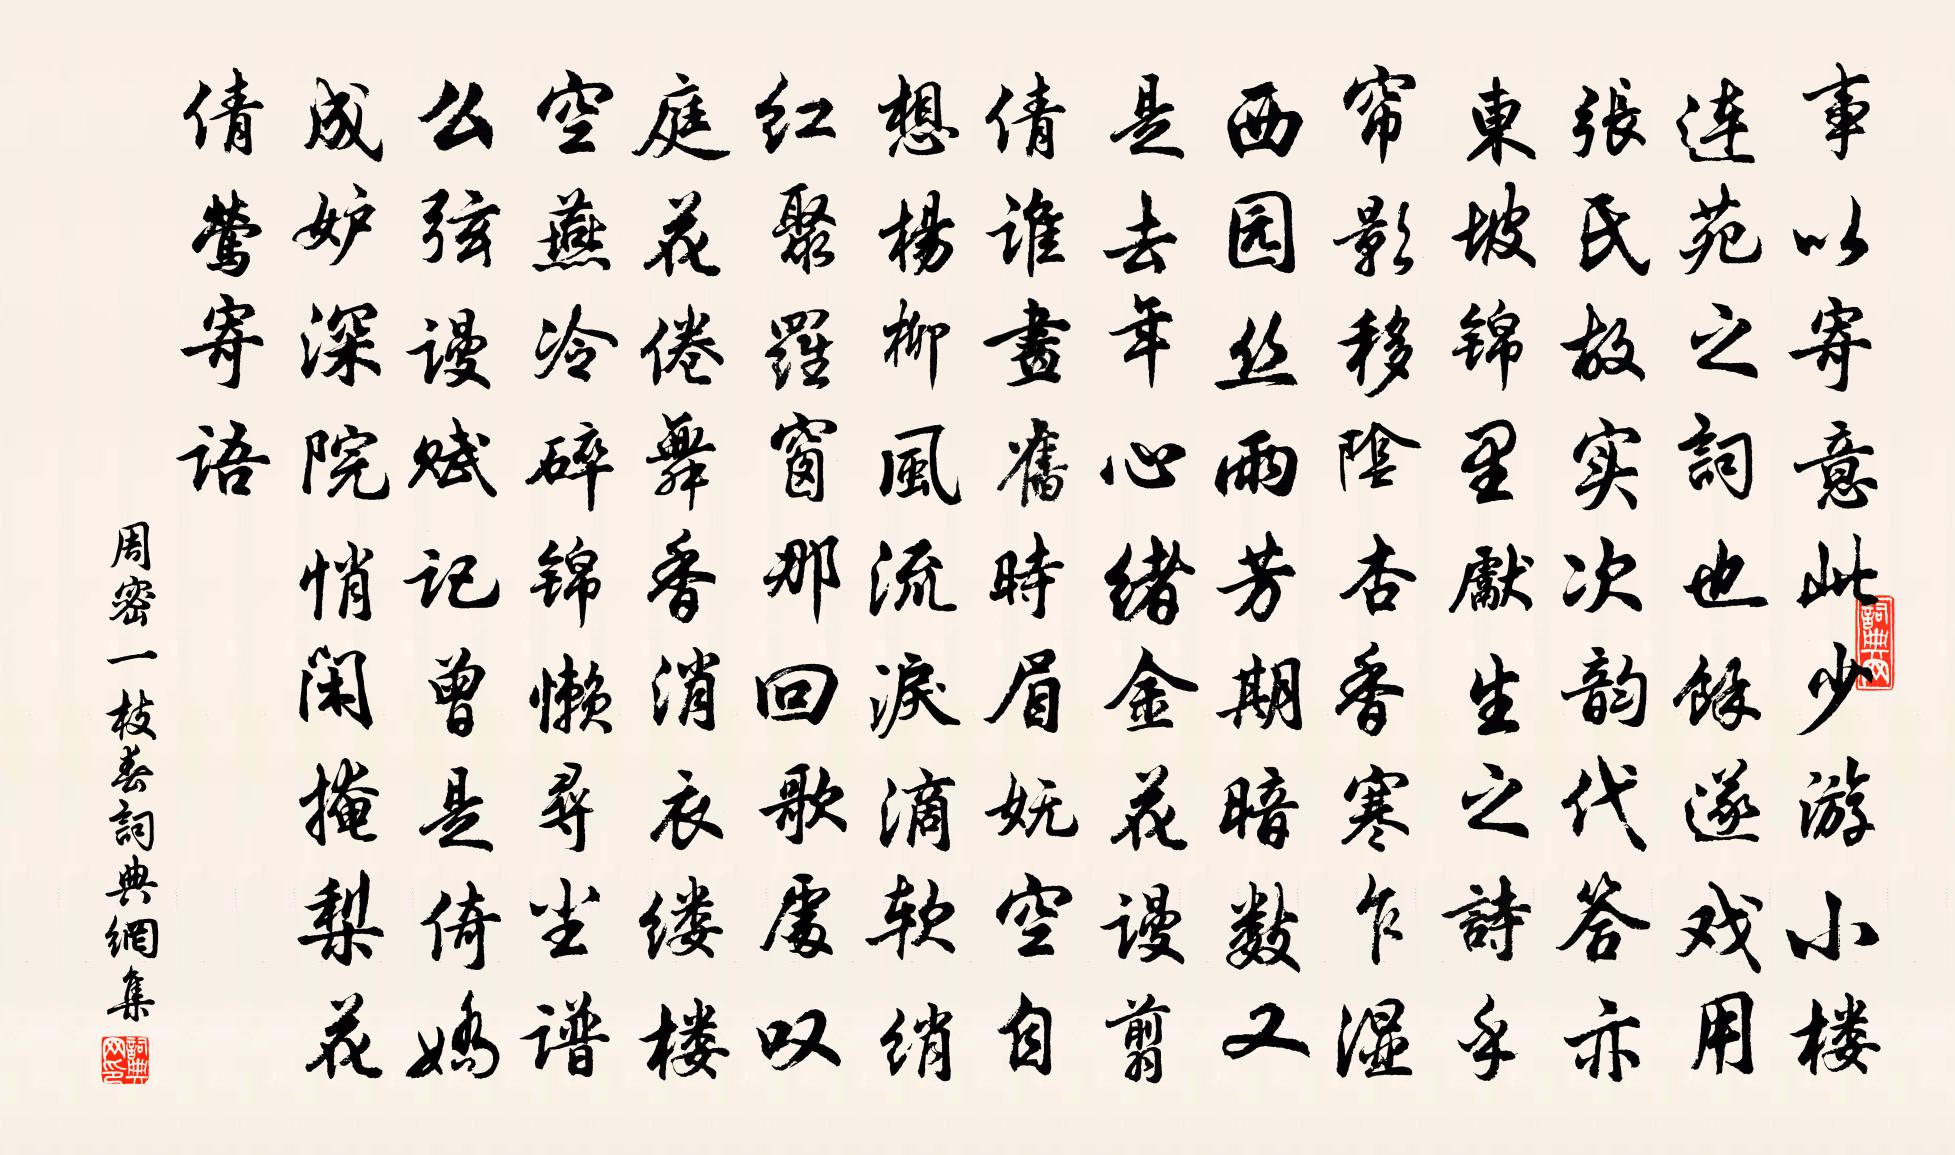 事以寄意此少游小楼
连苑之詞也餘遂戏用
張氏故实次韵代答亦
東坡锦里獻生之詩乎
帘影移陰杏香寒乍湿
西园丝雨芳期暗数又
是去年心绪金花谩剪
倩谁畫舊時眉妩空自
想楊柳風流淚滴软绡
红聚羅窗那回歌處叹
庭花倦舞香消衣缕楼
空燕冷碎锦懒尋尘谱
么弦谩赋记曾是倚嬌
成妒深院悄闲掩梨花
倩鶯寄语
周密一枝春詞典網集
詞典网
詞典网印